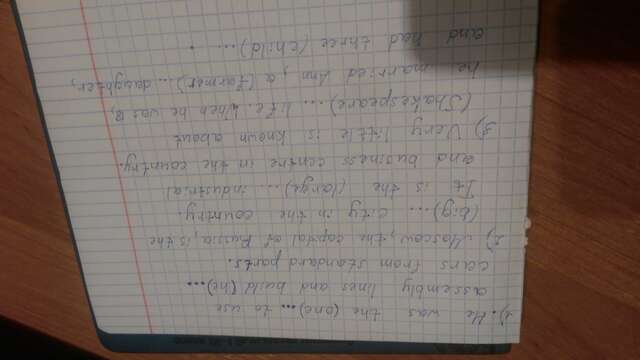 1). He was the (one)... to use
assembly lines and build (he)...
cars from standard parts.
2) Moscow, the capital of Russia, is the
(big)... city in the country.
It is the (large)... industrial
and business centre in the country.
3) Very little is known about
(Shakespeare)... life. When he was 18,
he married Ann, a (farmer)... daughter,
and had three (child)... .